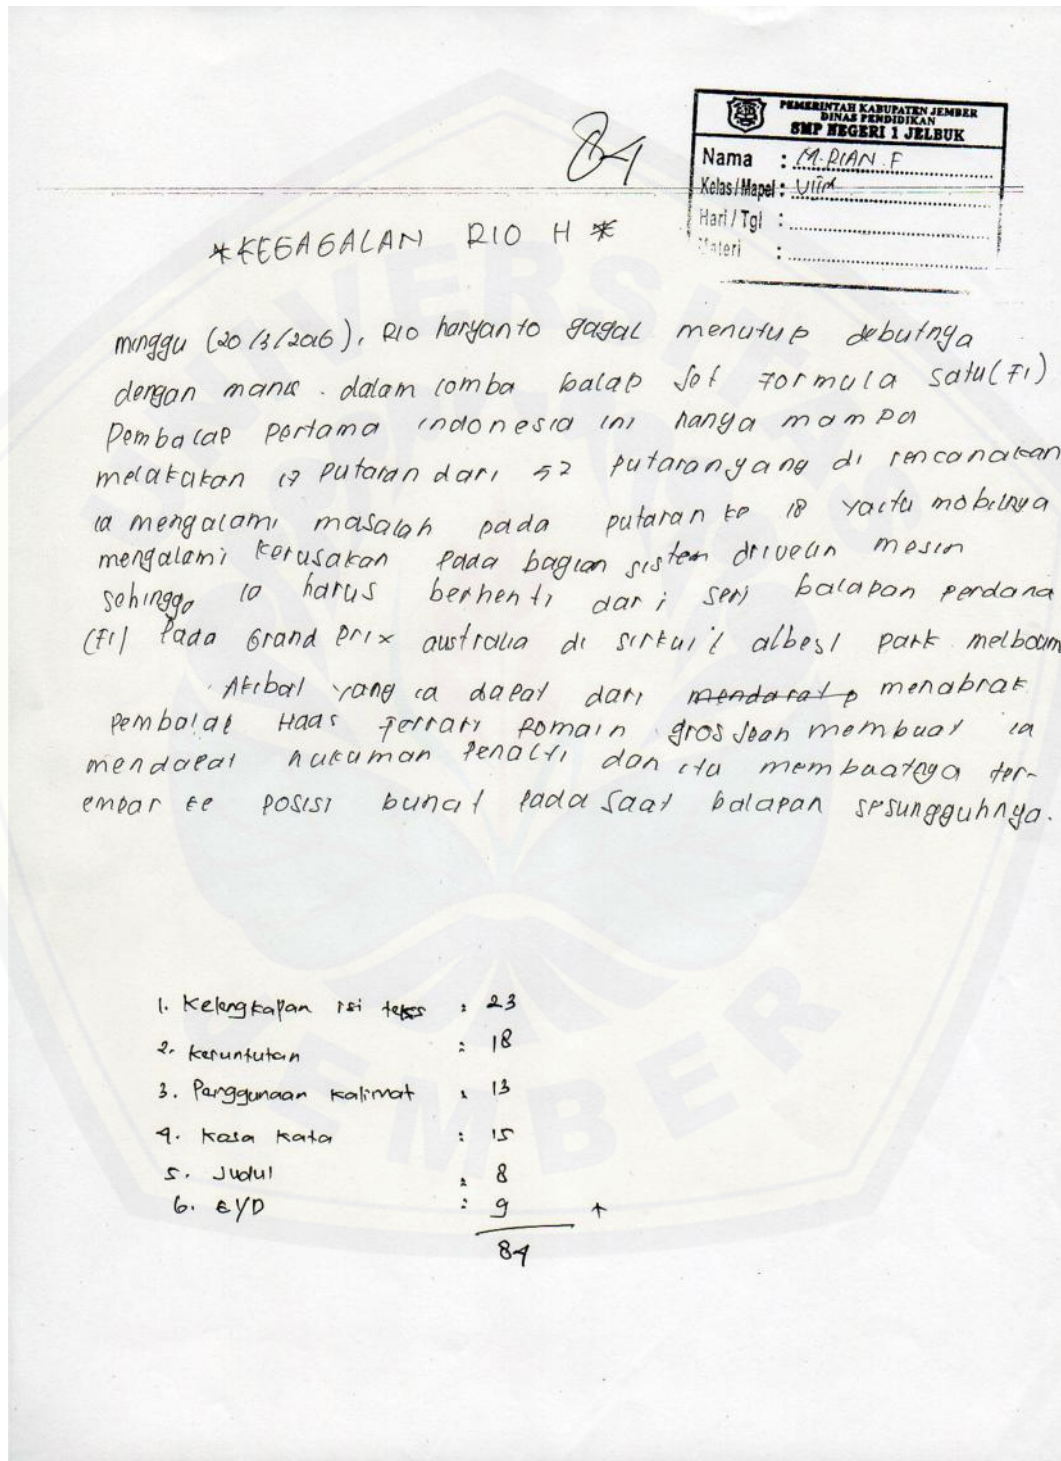 PEMERINTAH KABUPATEN JEMBER
DINAS PENDIDIKAN
SMP NEGERI 1 JELBUK
84
Nama : M.RIAN.F
Kelas/Mapel : VIIIA
Hari/Tgl :
Materi :
*KEGAGALAN RIO H*
minggu (20/3/2016), RIO haryanto gagal menutup debutnya
dengan manis. dalam lomba balap Jet Formula satu(F1)
Pembalap Pertama indonesia ini hanya mampu
melakukan 17 Putaran dari 57 putaran yang di rencanakan
ia mengalami masalah pada putaran ke 18 yaitu mobilnya
mengalami kerusakan pada bagian sistem drivelin mesin
sehingga ia harus berhenti dari seri balapan perdana
(F1) Pada Grand Prix australia di sirkuit albert park melbourn
Akibat yang ia dapat dari mendarat p menabrak
pembalap Haas Ferrari Romain grosJean membuat ia
mendapat hukuman penalti dan itu membuatnya ter-
empar ke posisi buncit pada saat balapan sesungguhnya.
1. Kelengkapan isi teks : 23
2. keruntutan : 18
3. Penggunaan kalimat : 13
4. Kosa kata : 15
5. Judul : 8
6. EYD : 9 +
84
UNIVERSITAS JEMBER